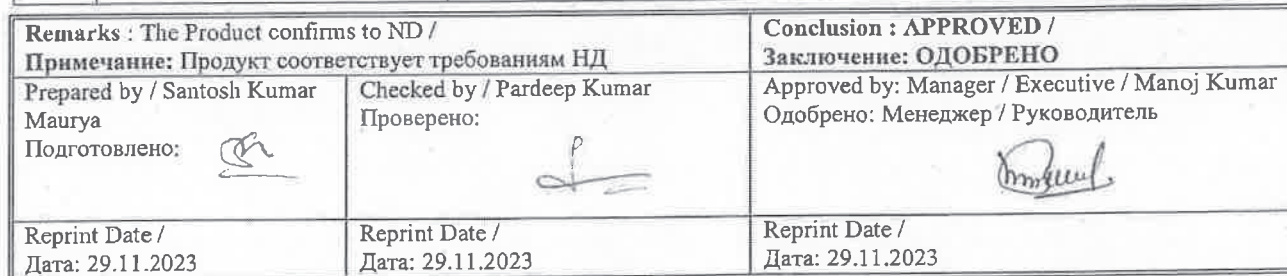 Remarks : The Product confirms to ND /
Примечание: Продукт соответствует требованиям НД
Conclusion : APPROVED /
Заключение: ОДОБРЕНО
Prepared by / Santosh Kumar
Maurya
Подготовлено:
Checked by / Pardeep Kumar
Проверено:
Approved by: Manager / Executive / Manoj Kumar
Одобрено: Менеджер / Руководитель
Reprint Date /
Дата: 29.11.2023
Reprint Date /
Дата: 29.11.2023
Reprint Date /
Дата: 29.11.2023